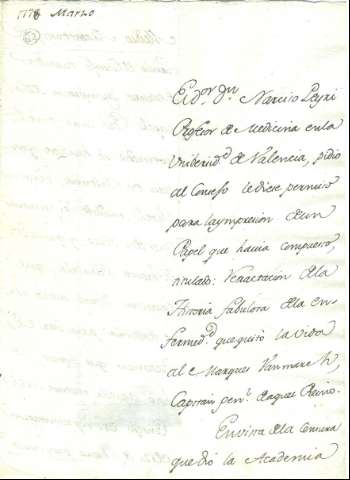 1778 Marzo
El Dor. Dn. Narciso Peyri
Profesor de Medicina en la
Unibersidd. de Valencia, pidio
al Consejo le diese permiso
para la ympresion de un
Papel que havia compuesto,
titulado: de la
Historia fabulosa de la en-
fermedd. que quitó la vida
al Marques Vanmarck,
Capitan Genl. de aquel Reino.
En vista de la censura
que dió la Academia